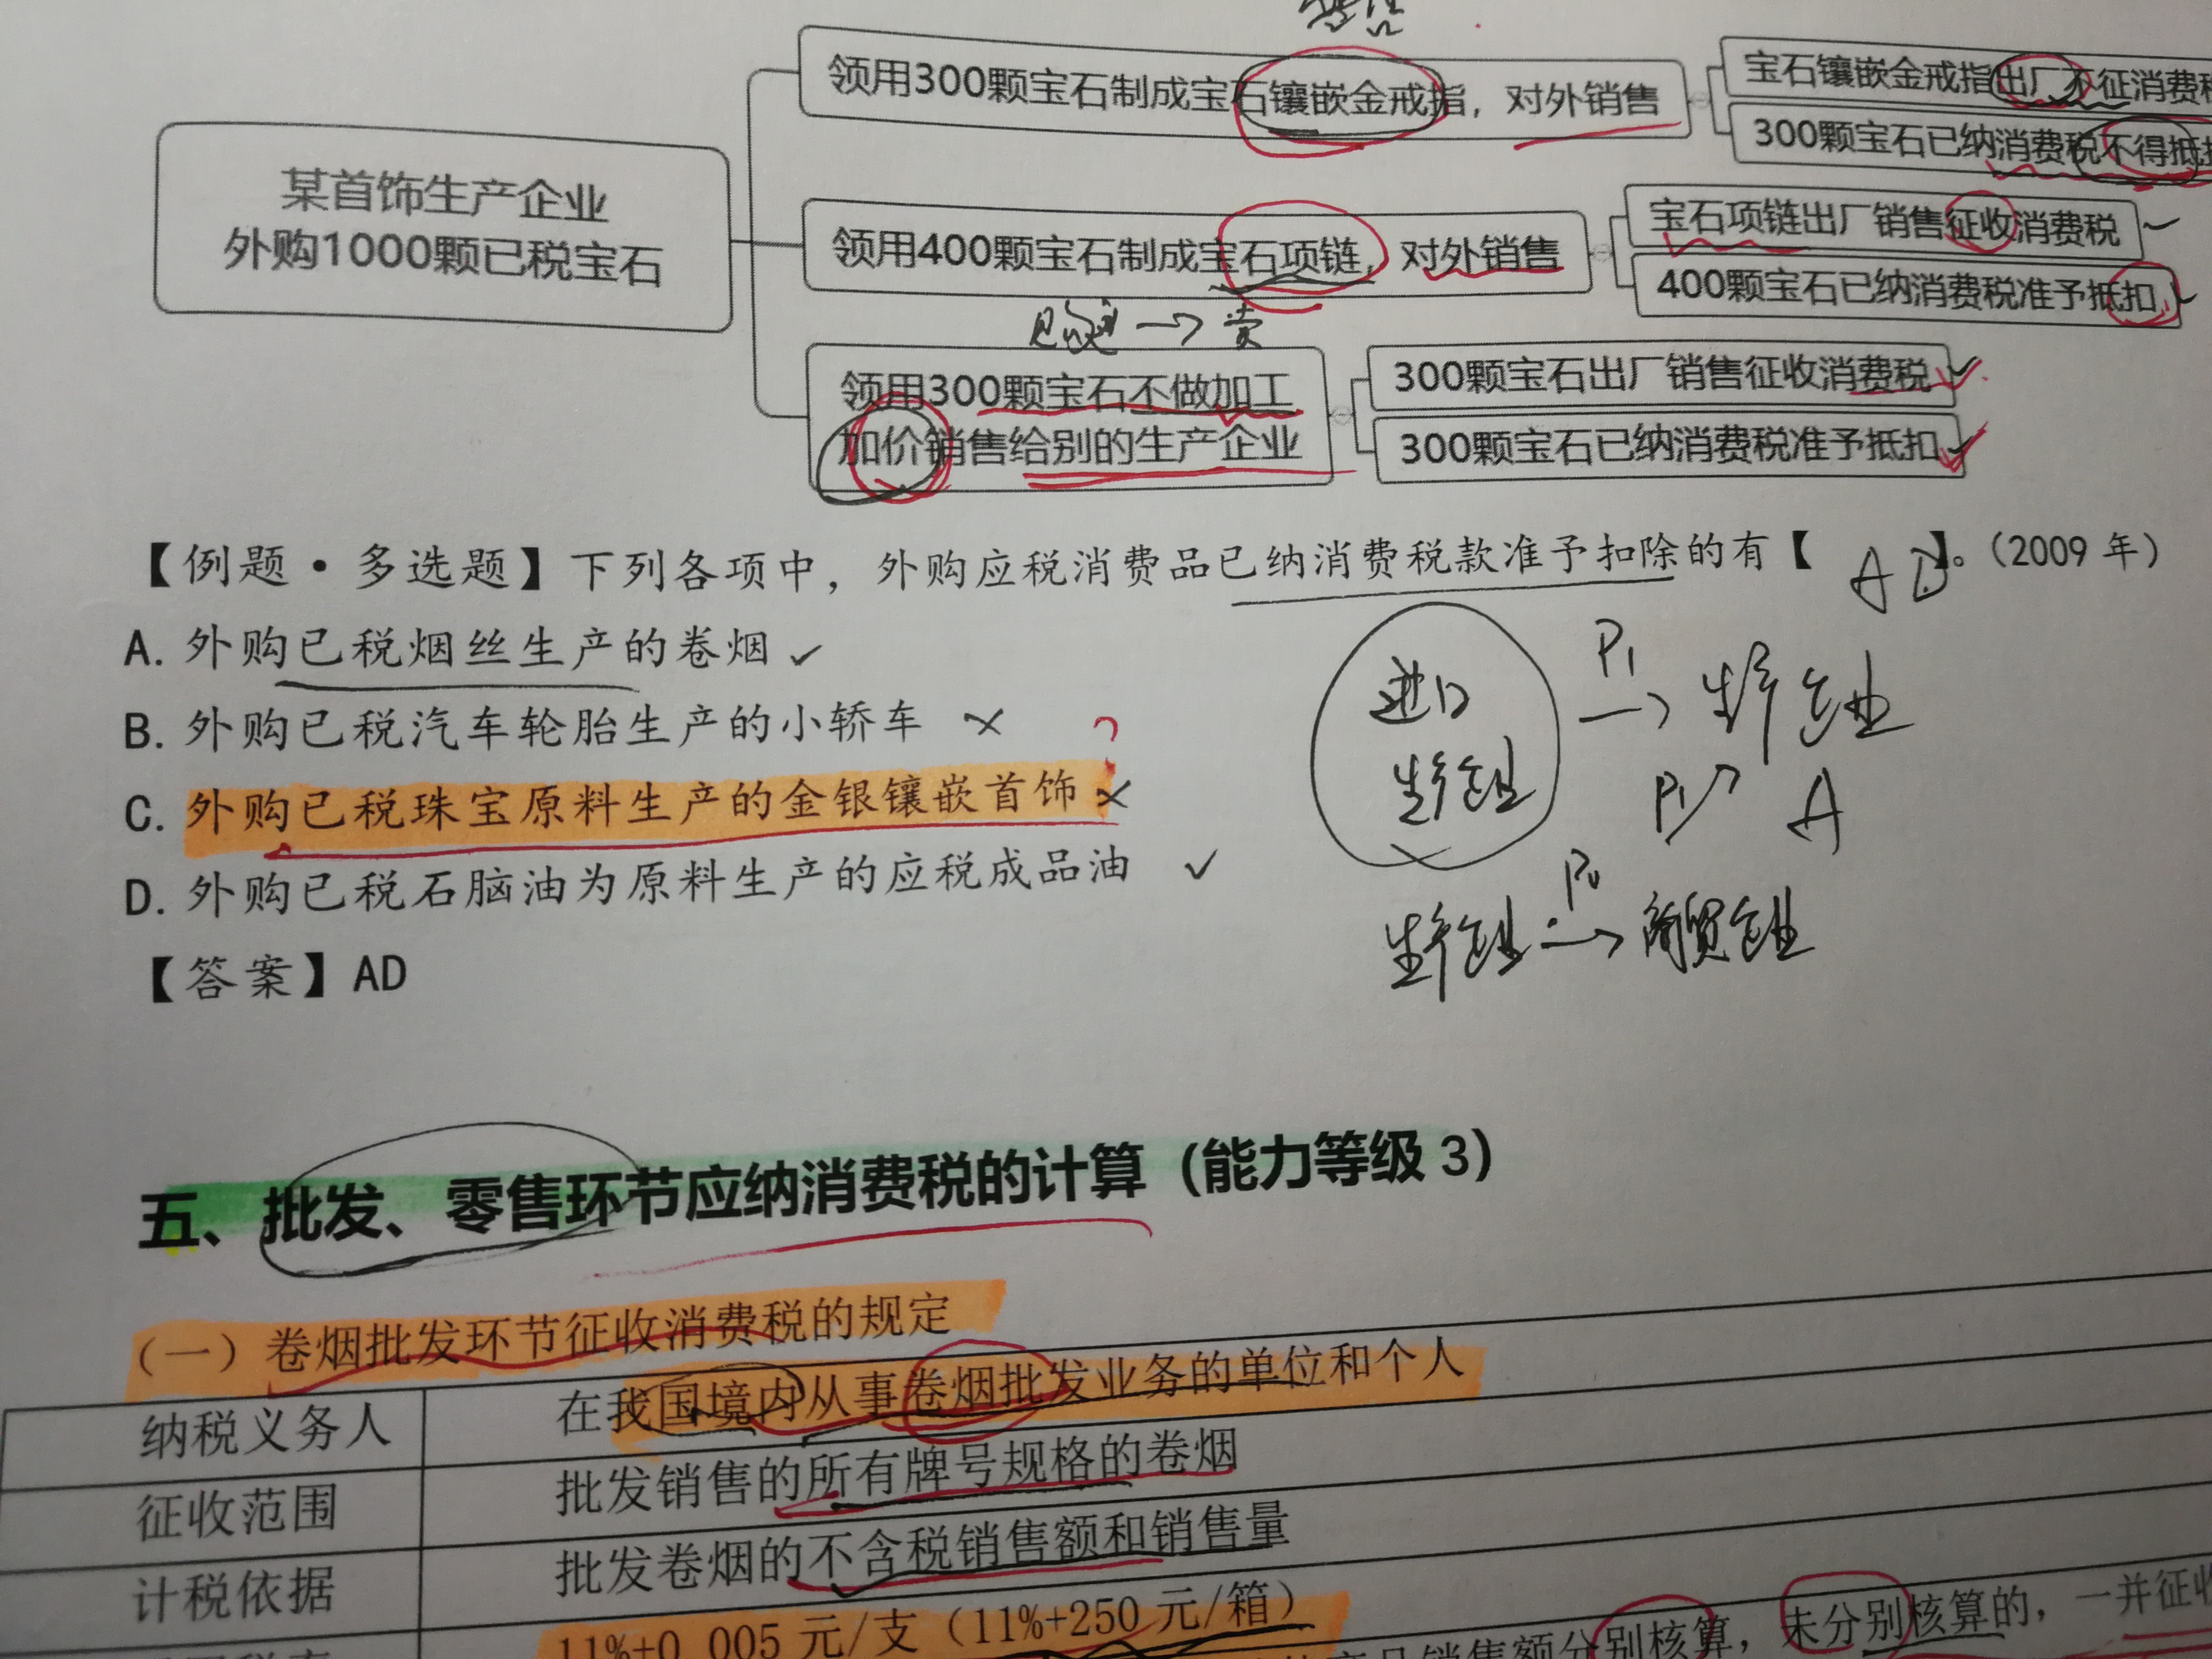 零售
领用300颗宝石制成宝石镶嵌金戒指，对外销售
宝石镶嵌金戒指出厂不征消费税
300颗宝石已纳消费税不得抵扣
某首饰生产企业
外购1000颗已税宝石
领用400颗宝石制成宝石项链，对外销售
宝石项链出厂销售征收消费税
400颗宝石已纳消费税准予抵扣
→ 卖
领用300颗宝石不做加工
加价销售给别的生产企业
300颗宝石出厂销售征收消费税
300颗宝石已纳消费税准予抵扣
【例题·多选题】下列各项中，外购应税消费品已纳消费税款准予扣除的有【 AD 】。（2009 年）
A. 外购已税烟丝生产的卷烟 ✓
B. 外购已税汽车轮胎生产的小轿车 ×
C. 外购已税珠宝原料生产的金银镶嵌首饰 × ?
D. 外购已税石脑油为原料生产的应税成品油 ✓
进口
生产企业
P₁ → 生产企业
P₁ A
生产企业 → 商贸企业
【答案】AD
五、批发、零售环节应纳消费税的计算（能力等级 3）
（一）卷烟批发环节征收消费税的规定
纳税义务人 在我国境内从事卷烟批发业务的单位和个人
征收范围 批发销售的所有牌号规格的卷烟
计税依据 批发卷烟的不含税销售额和销售量
11%+0.005 元/支（11%+250 元/箱）
销售额分别核算，未分别核算的，一并征收